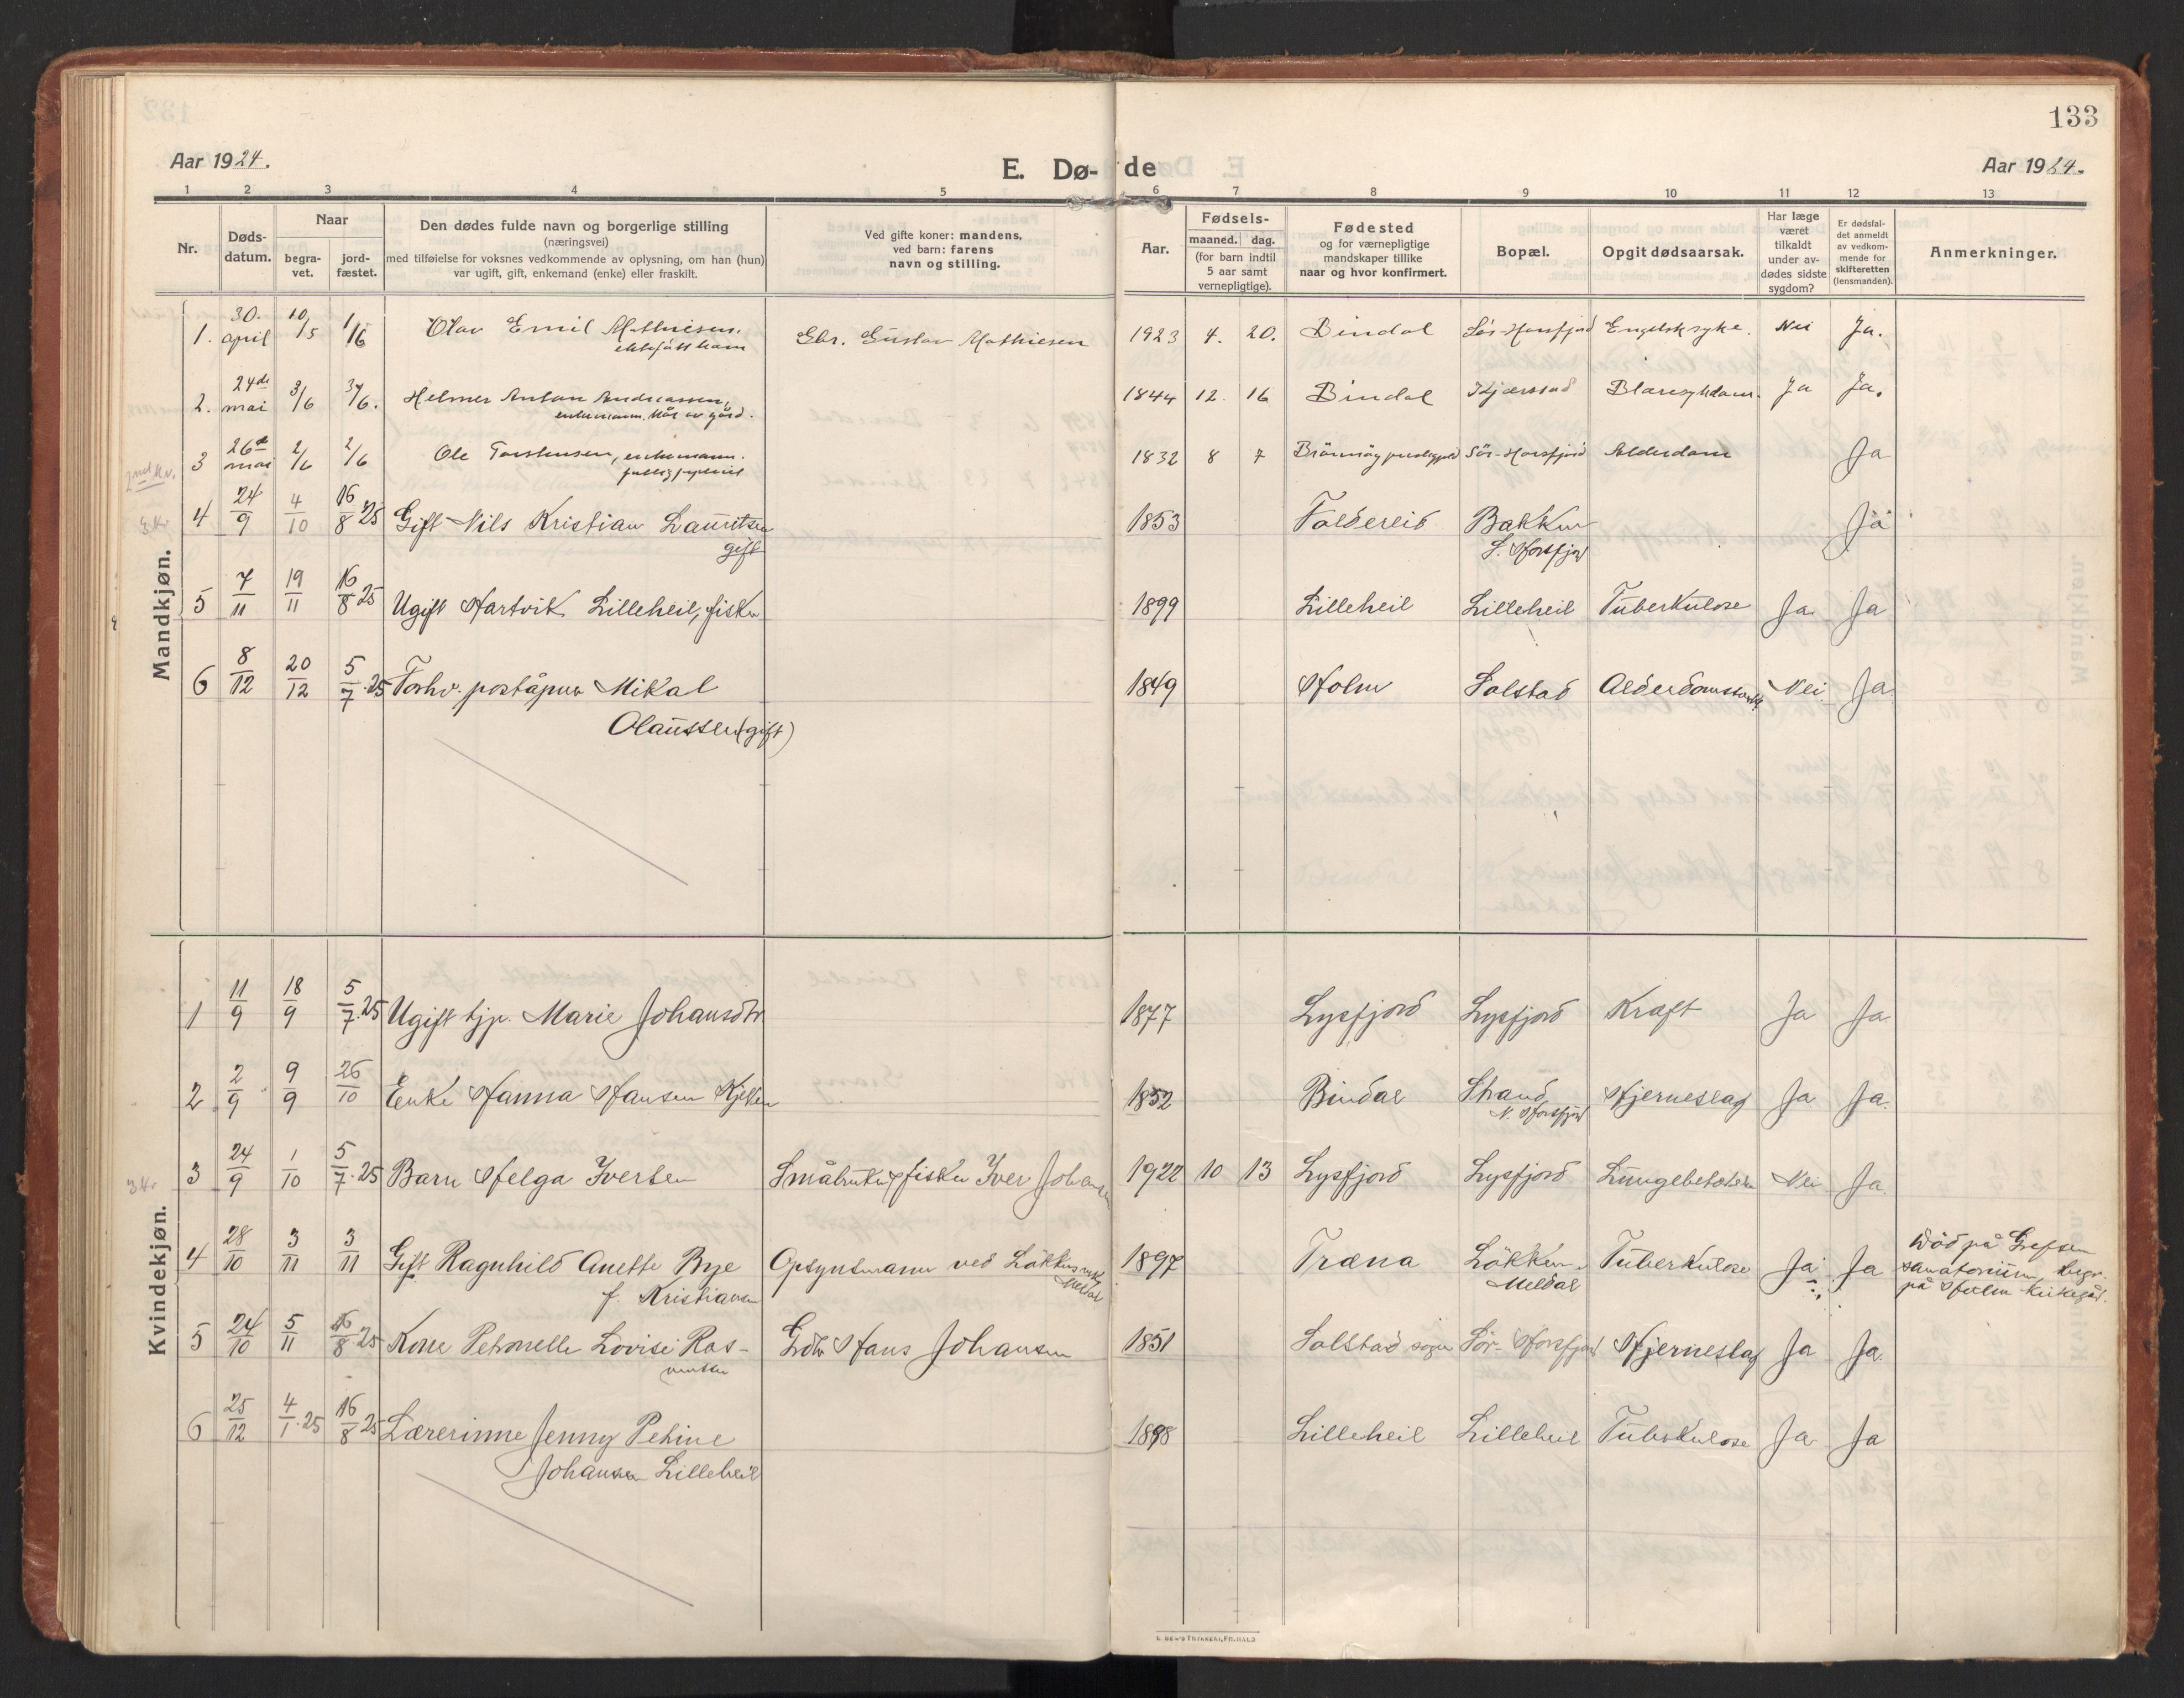 133
Aar 1924.
E. Dø- de
Aar 1924.
1 2 3 4 5 6 7 8 9 10 11 12 13
Nr.
Døds-
datum.
Naar
begra-
vet.
jord-
fæstet.
Den dødes fulde navn og borgerlige stilling
(næringsvei)
med tilføielse for voksnes vedkommende av oplysning, om han (hun)
var ugift, gift, enkemand (enke) eller fraskilt.
Ved gifte koner: mandens,
ved barn: farens
navn og stilling.
Aar.
Fødsels-
maaned. dag.
(for barn indtil
5 aar samt
vernepligtige).
Fødested
og for værnepligtige
mandskaper tillike
naar og hvor konfirmert.
Bopæl.
Opgit dødsaarsak.
Har læge
været
tilkaldt
under av-
dødes sidste
sygdom?
Er dødsfal-
det anmeldt
av vedkom-
mende for
skifteretten
(lensmanden).
Anmerkninger.
Mandkjøn.
1. 30. april 10/5 1/6 Olav Emil Mathiesen. Gbr. Gustav Mathiesen 1923 4. 20. Bindal Sör-Horsfjord Engelsk syke. Nei Ja.
2. 24de mai 3/6 3/6. Helmer Anton Andreassen, 1844 12. 16 Bindal Kjærstad Blæresykdom. Ja Ja.
enkemann, kår av gård.
3 26de mai 2/6 2/6 Ole Torstensen, enkemann. 1832 8 7 Brönnöy prestegjeld Sör-Horsfjord Alderdom Ja
4 24/9 4/10 16/8 25 Gift Nils Kristian Lauritsen 1853 Foldereid Bakken Ja
gift S. Horsfjord
5 7/11 19/11 16/8 25 Ugift Hartvik Lilleheil, fisker 1899 Lilleheil Lilleheil Tuberkulose Ja Ja
6 8/12 20/12 5/7.25 Forhv. poståpner Mikal 1849 Holm Solstad Nei Ja
Olaussen (gift)
Kvindekjøn.
1 11/9 18/9 5/7.25 Ugift tjp. Marie Johansdtr 1877 Lysfjord Lysfjord Kræft Ja Ja
2 2/9 9/9 26/10 Enke Hanna Hansen Kjelken 1852 Bindal Strand Hjerneslag Ja Ja.
N. Horsfjord
3 Kv.
3 24/9 1/10 5/7.25 Barn Helga Iversen Småbruker & fisker Iver Johansen 1922 10 13 Lysfjord Lysfjord Lungebetændelse Nei Ja
4 28/10 3/11 3/11 Gift Ragnhild Anette Bye Opsynsmann ved Lökkens verk 1897 Træna Lökken Tuberkulose Ja Ja Död på Grefsen
f. Kristiansen Meldal Meldal sanatorium, begr.
på Holm kirkegård.
5 24/10 5/11 16/8 25 Kone Petronelle Lovise Ras- Grdbr Hans Johansen 1851 Solstad sogn Sör-Horsfjord Hjerneslag Ja Ja
mussen
6 25/12 4/1.25 16/8 25 Lærerinne Jenny Petine 1898 Lilleheil Lilleheil Tuberkulose Ja Ja
Johansen Lilleheil